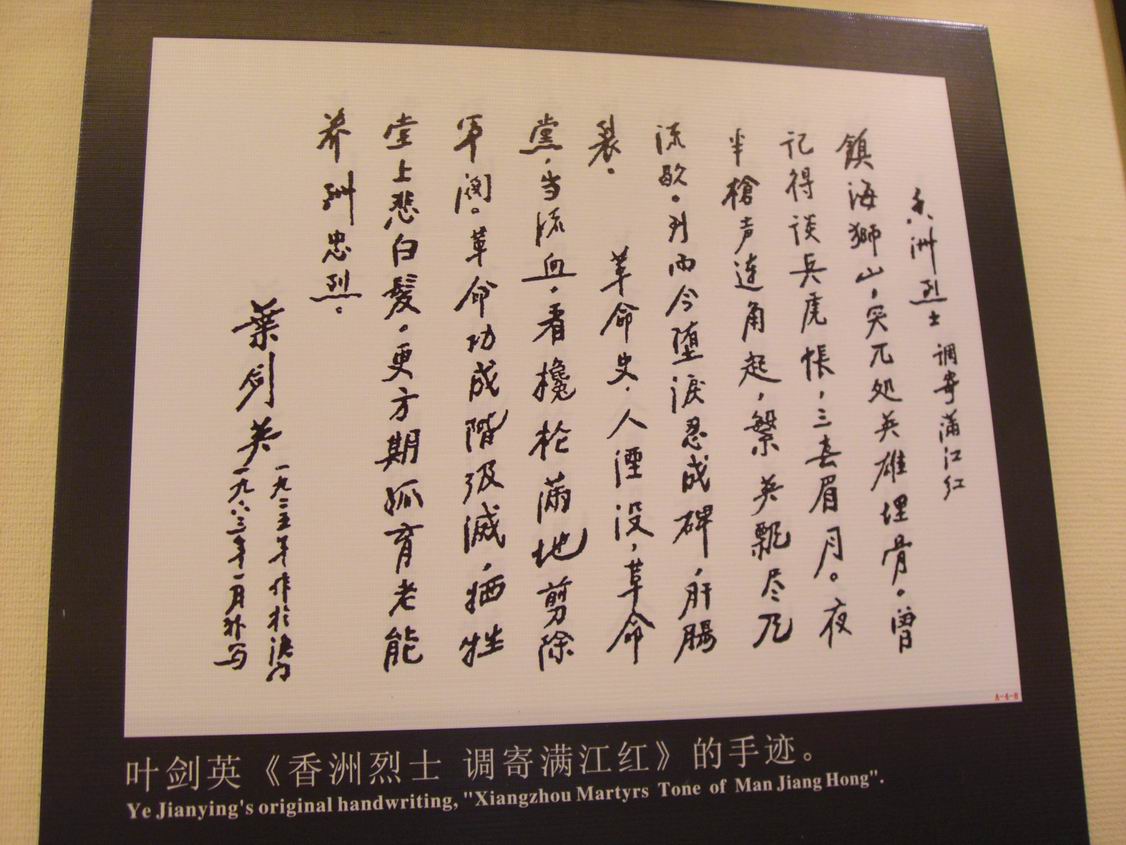 香洲烈士 调寄满江红
鎮海獅山，突兀处英雄埋骨。曾
记得谈兵虎帐，三春眉月。夜
半槍声连角起，繁英飘尽
流歇。到而今堕淚忍成碑，肝腸
裂。
革命史，人湮没，革命
党，当流血，看欃枪满地剪除
军阀。革命功成阶级滅，牺牲
堂上悲白髮。更方期孤育老能
养洲忠烈。
葉剑英
一九二五年作於澳门
一九八三年一月补写
A-4-8
叶剑英《香洲烈士 调寄满江红》的手迹。
Ye Jianying's original handwriting, "Xiangzhou Martyrs Tone of Man Jiang Hong".